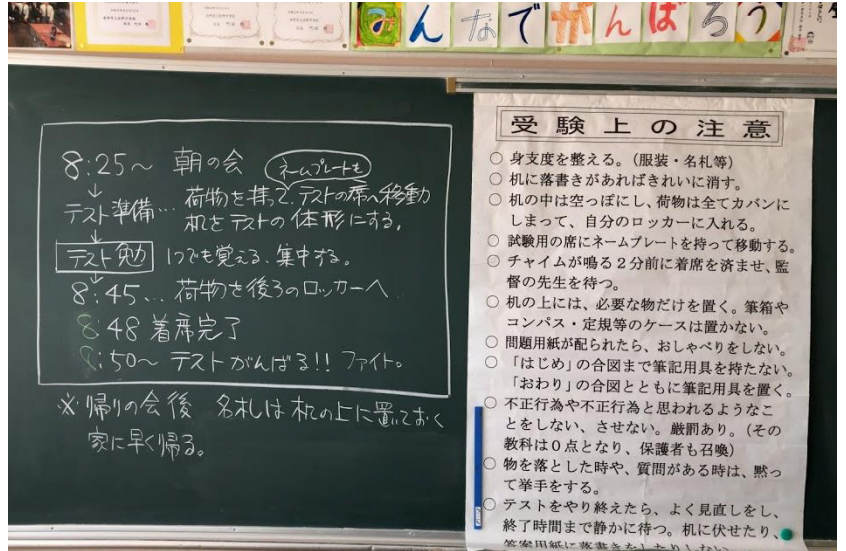 みんなでがんばろう
8:25～ 朝の会
ネームプレートを
↓
テスト準備… 荷物を持って、テストの席へ移動
机をテストの体形にする。
↓
テスト勉 1つでも覚える、集中する。
↓
8:45… 荷物を後ろのロッカーへ
8:48 着席完了
8:50～ テストがんばる!! ファイト。
※帰りの会後 名札は机の上に置いておく
家に早く帰る。
受験上の注意
○ 身支度を整える。(服装・名札等)
○ 机に落書きがあればきれいに消す。
○ 机の中は空っぽにし、荷物は全てカバンに
しまって、自分のロッカーに入れる。
○ 試験用の席にネームプレートを持って移動する。
○ チャイムが鳴る2分前に着席を済ませ、監
督の先生を待つ。
○ 机の上には、必要な物だけを置く。筆箱や
コンパス・定規等のケースは置かない。
○ 問題用紙が配られたら、おしゃべりをしない。
○ 「はじめ」の合図まで筆記用具を持たない。
「おわり」の合図とともに筆記用具を置く。
○ 不正行為や不正行為と思われるようなこ
とをしない、させない。厳罰あり。(その
教科は0点となり、保護者も召喚)
○ 物を落とした時や、質問がある時は、黙っ
て挙手をする。
○ テストをやり終えたら、よく見直しをし、
終了時間まで静かに待つ。机に伏せたり、
答案用紙に落書きをしたりしない。